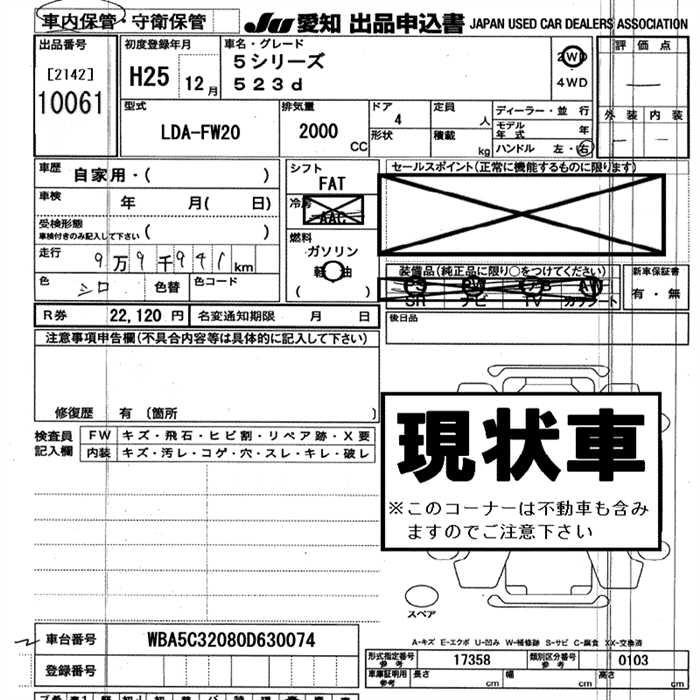 車内保管・守衛保管 JU 愛知 出品申込書 JAPAN USED CAR DEALERS ASSOCIATION
出品番号 初度登録年月 車名・グレード 評価点
[2142] H25 12月 5シリーズ 2WD
10061 523d 4WD
型式 排気量 ドア 定員 ディーラー・並行 外装 内装
LDA-FW20 2000 CC 4 人 モデル年式 年
形状 積載 kg ハンドル 左・右
車歴 自家用・( ) シフト セールスポイント(正常に機能するものに限ります)
FAT
車検 年 月( 日) 冷房 AAC
受検形態
車検付きのみ記入して下さい ( ) 燃料
ガソリン
走行 9万9千941km 軽油 装備品(純正品に限り○をつけてください) 新車保証書
色 シロ 色替 色コード ( ) PS PW AB AW 有・無
SR ナビ TV カワシート
R券 22,120 円 名変通知期限 月 日 後日品
注意事項申告欄(不具合内容等は具体的に記入して下さい)
修復歴 有 〔箇所 〕
現状車
※このコーナーは不動車も含み
ますのでご注意下さい
検査員 FW キズ・飛石・ヒビ割・リペア跡・X要
記入欄 内装 キズ・汚レ・コゲ・穴・スレ・キレ・破レ
スペア
A-キズ E-エクボ U-凹み W-補修跡 S-サビ C-腐食 XX-交換済
車台番号 WBA5C32080D630074
形式指定番号 参考 17358 類別区分番号 参考 0103
登録番号 車庫証明用 参考 長さ cm 幅 cm 高さ cm